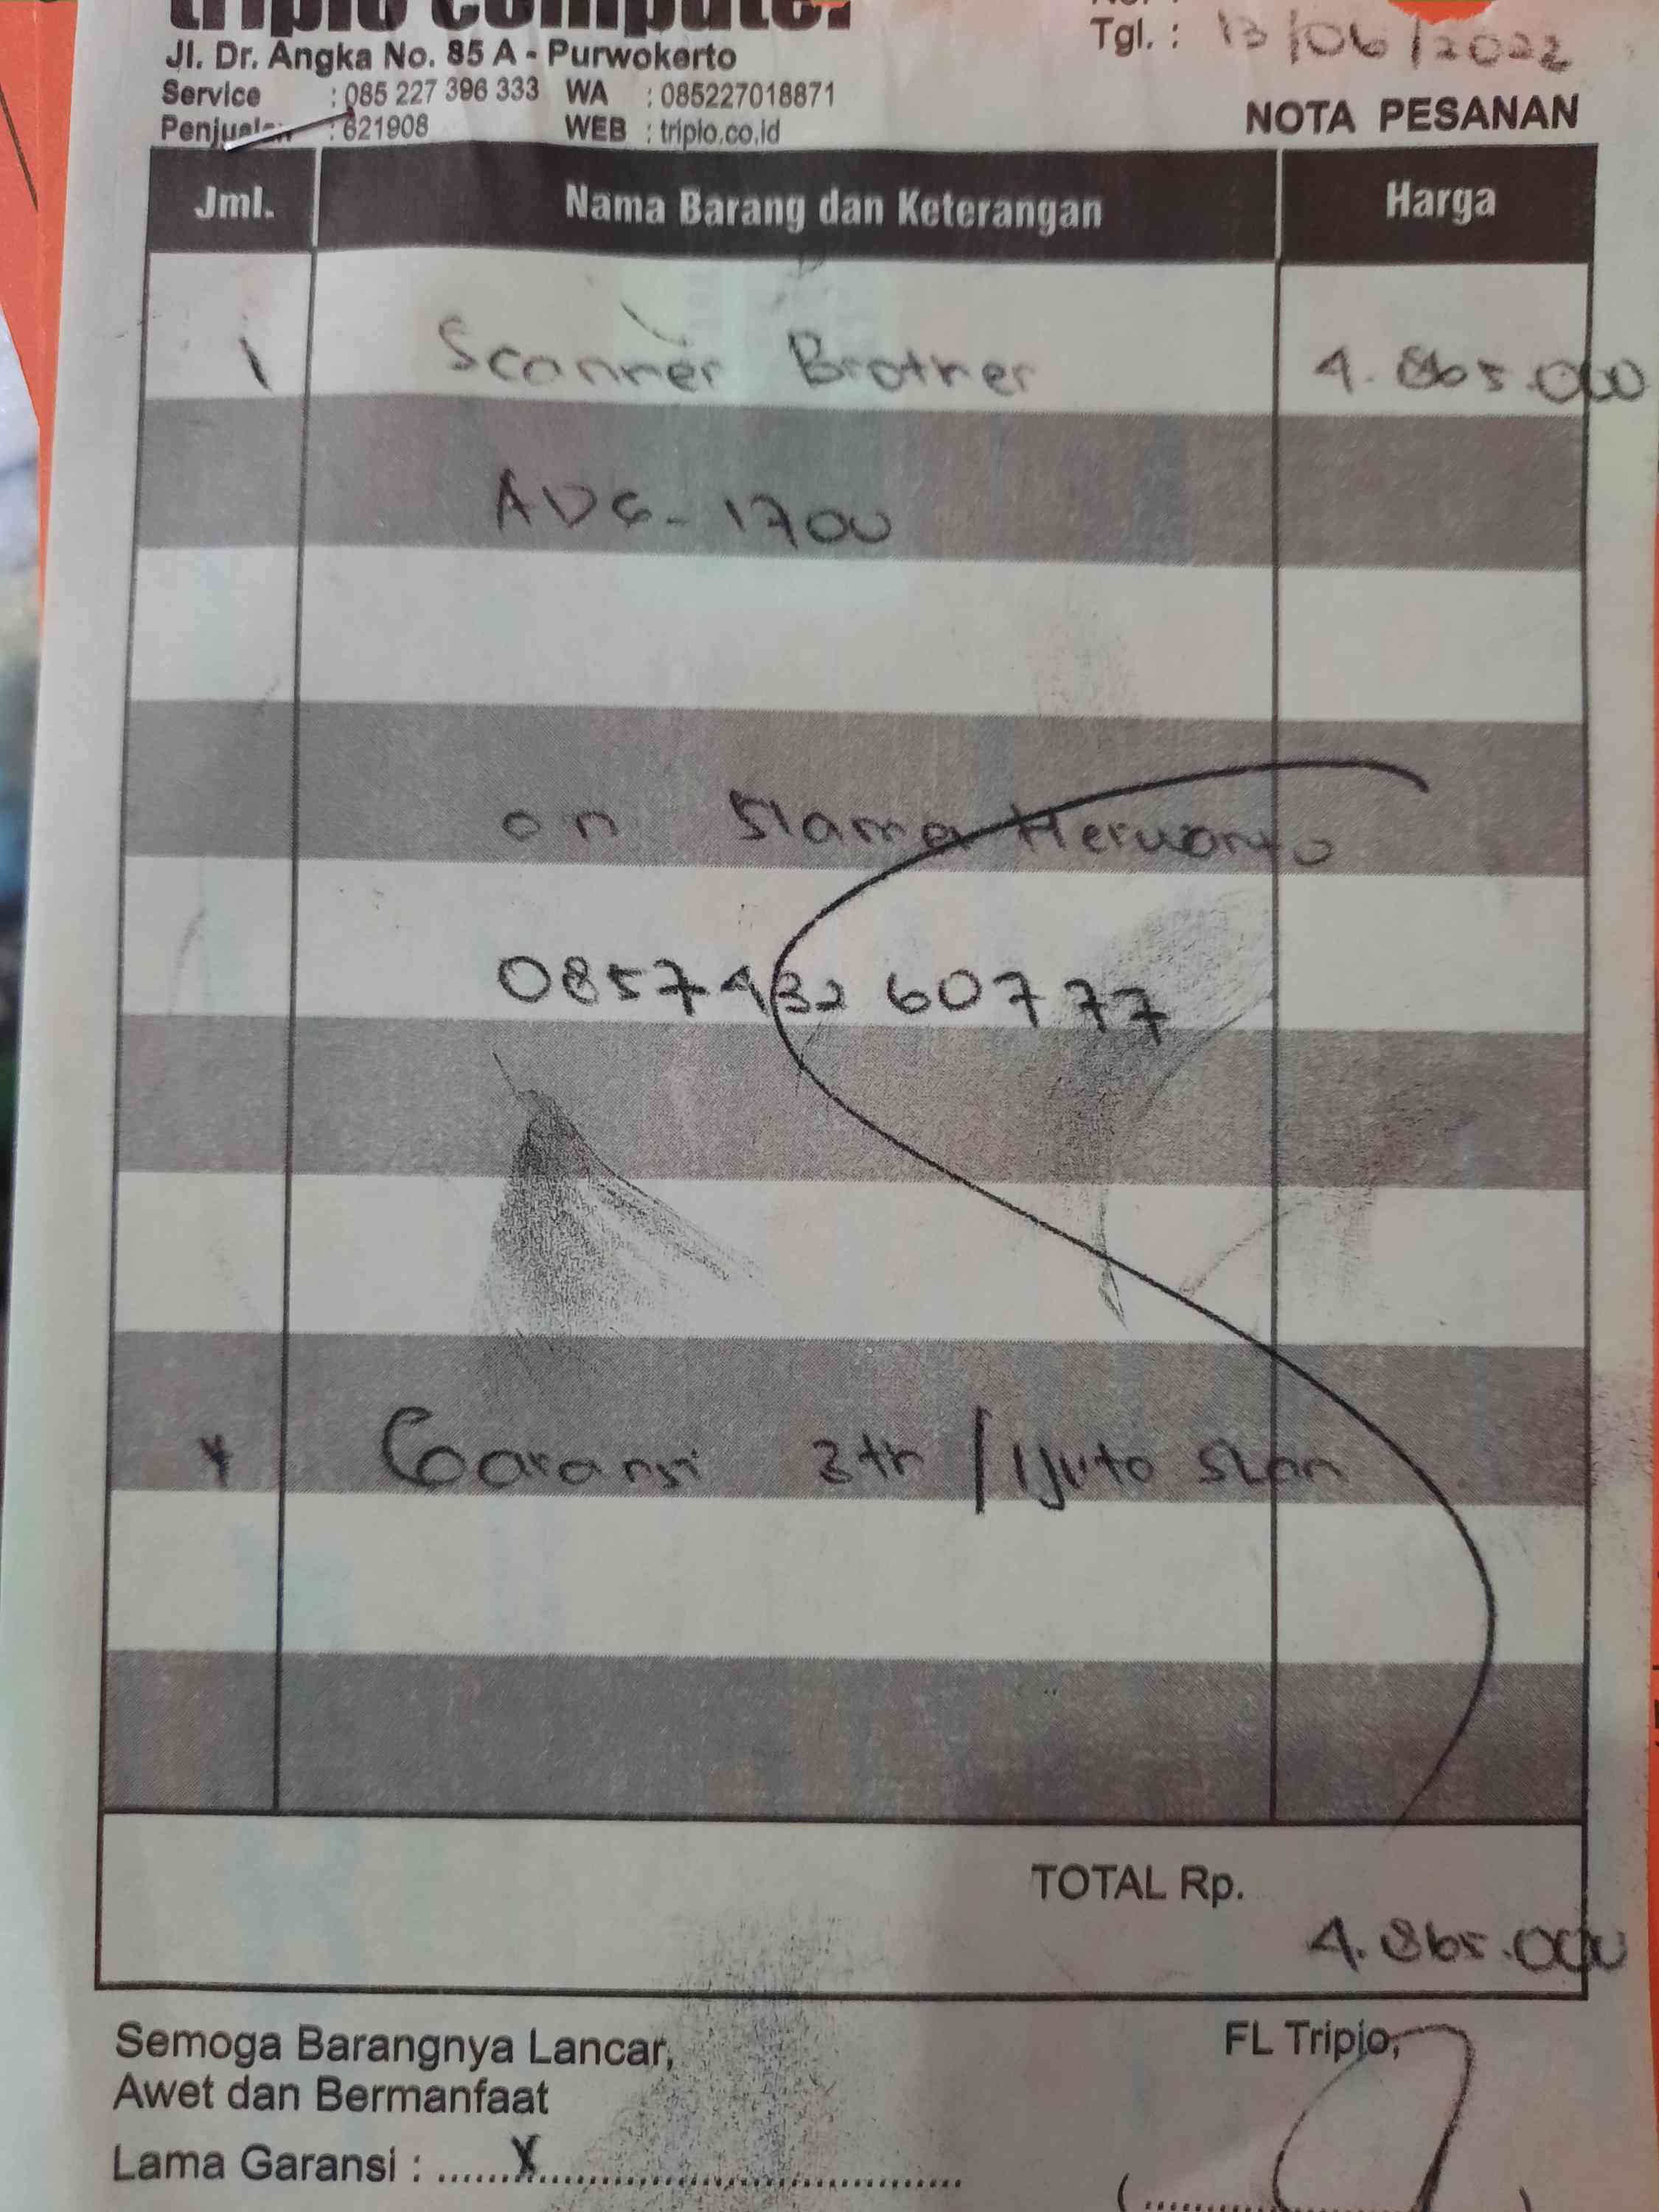 triplo computer
Jl. Dr. Angka No. 85 A - Purwokerto
Service : 085 227 396 333 WA : 085227018871
Penjualan : 621908 WEB : triplo.co.id
Tgl. : 13/06/2022
NOTA PESANAN
Jml. Nama Barang dan Keterangan Harga
1 Scanner Brother 4.865.000
ADS-1700
an Herwanto
0857432 60777
* Garansi 3th / 1 juta scan
TOTAL Rp.
4.865.000
Semoga Barangnya Lancar,
Awet dan Bermanfaat
FL Triplo,
Lama Garansi : ......x......